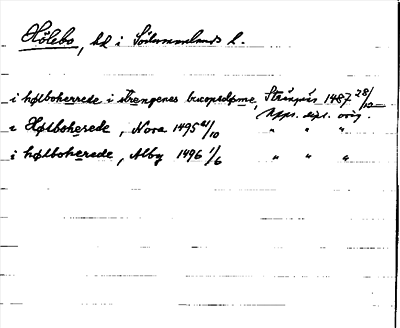 Hölebo, hd i Södermanlands l.
i høtboherrede i strengenes biscopsdøme, Strängnäs 1487 28/10
Upps. dipl. orig.
i Høtbokerede, Nora 1495 21/10 " " "
i høtbokerede, Alby 1496 1/6 " " "